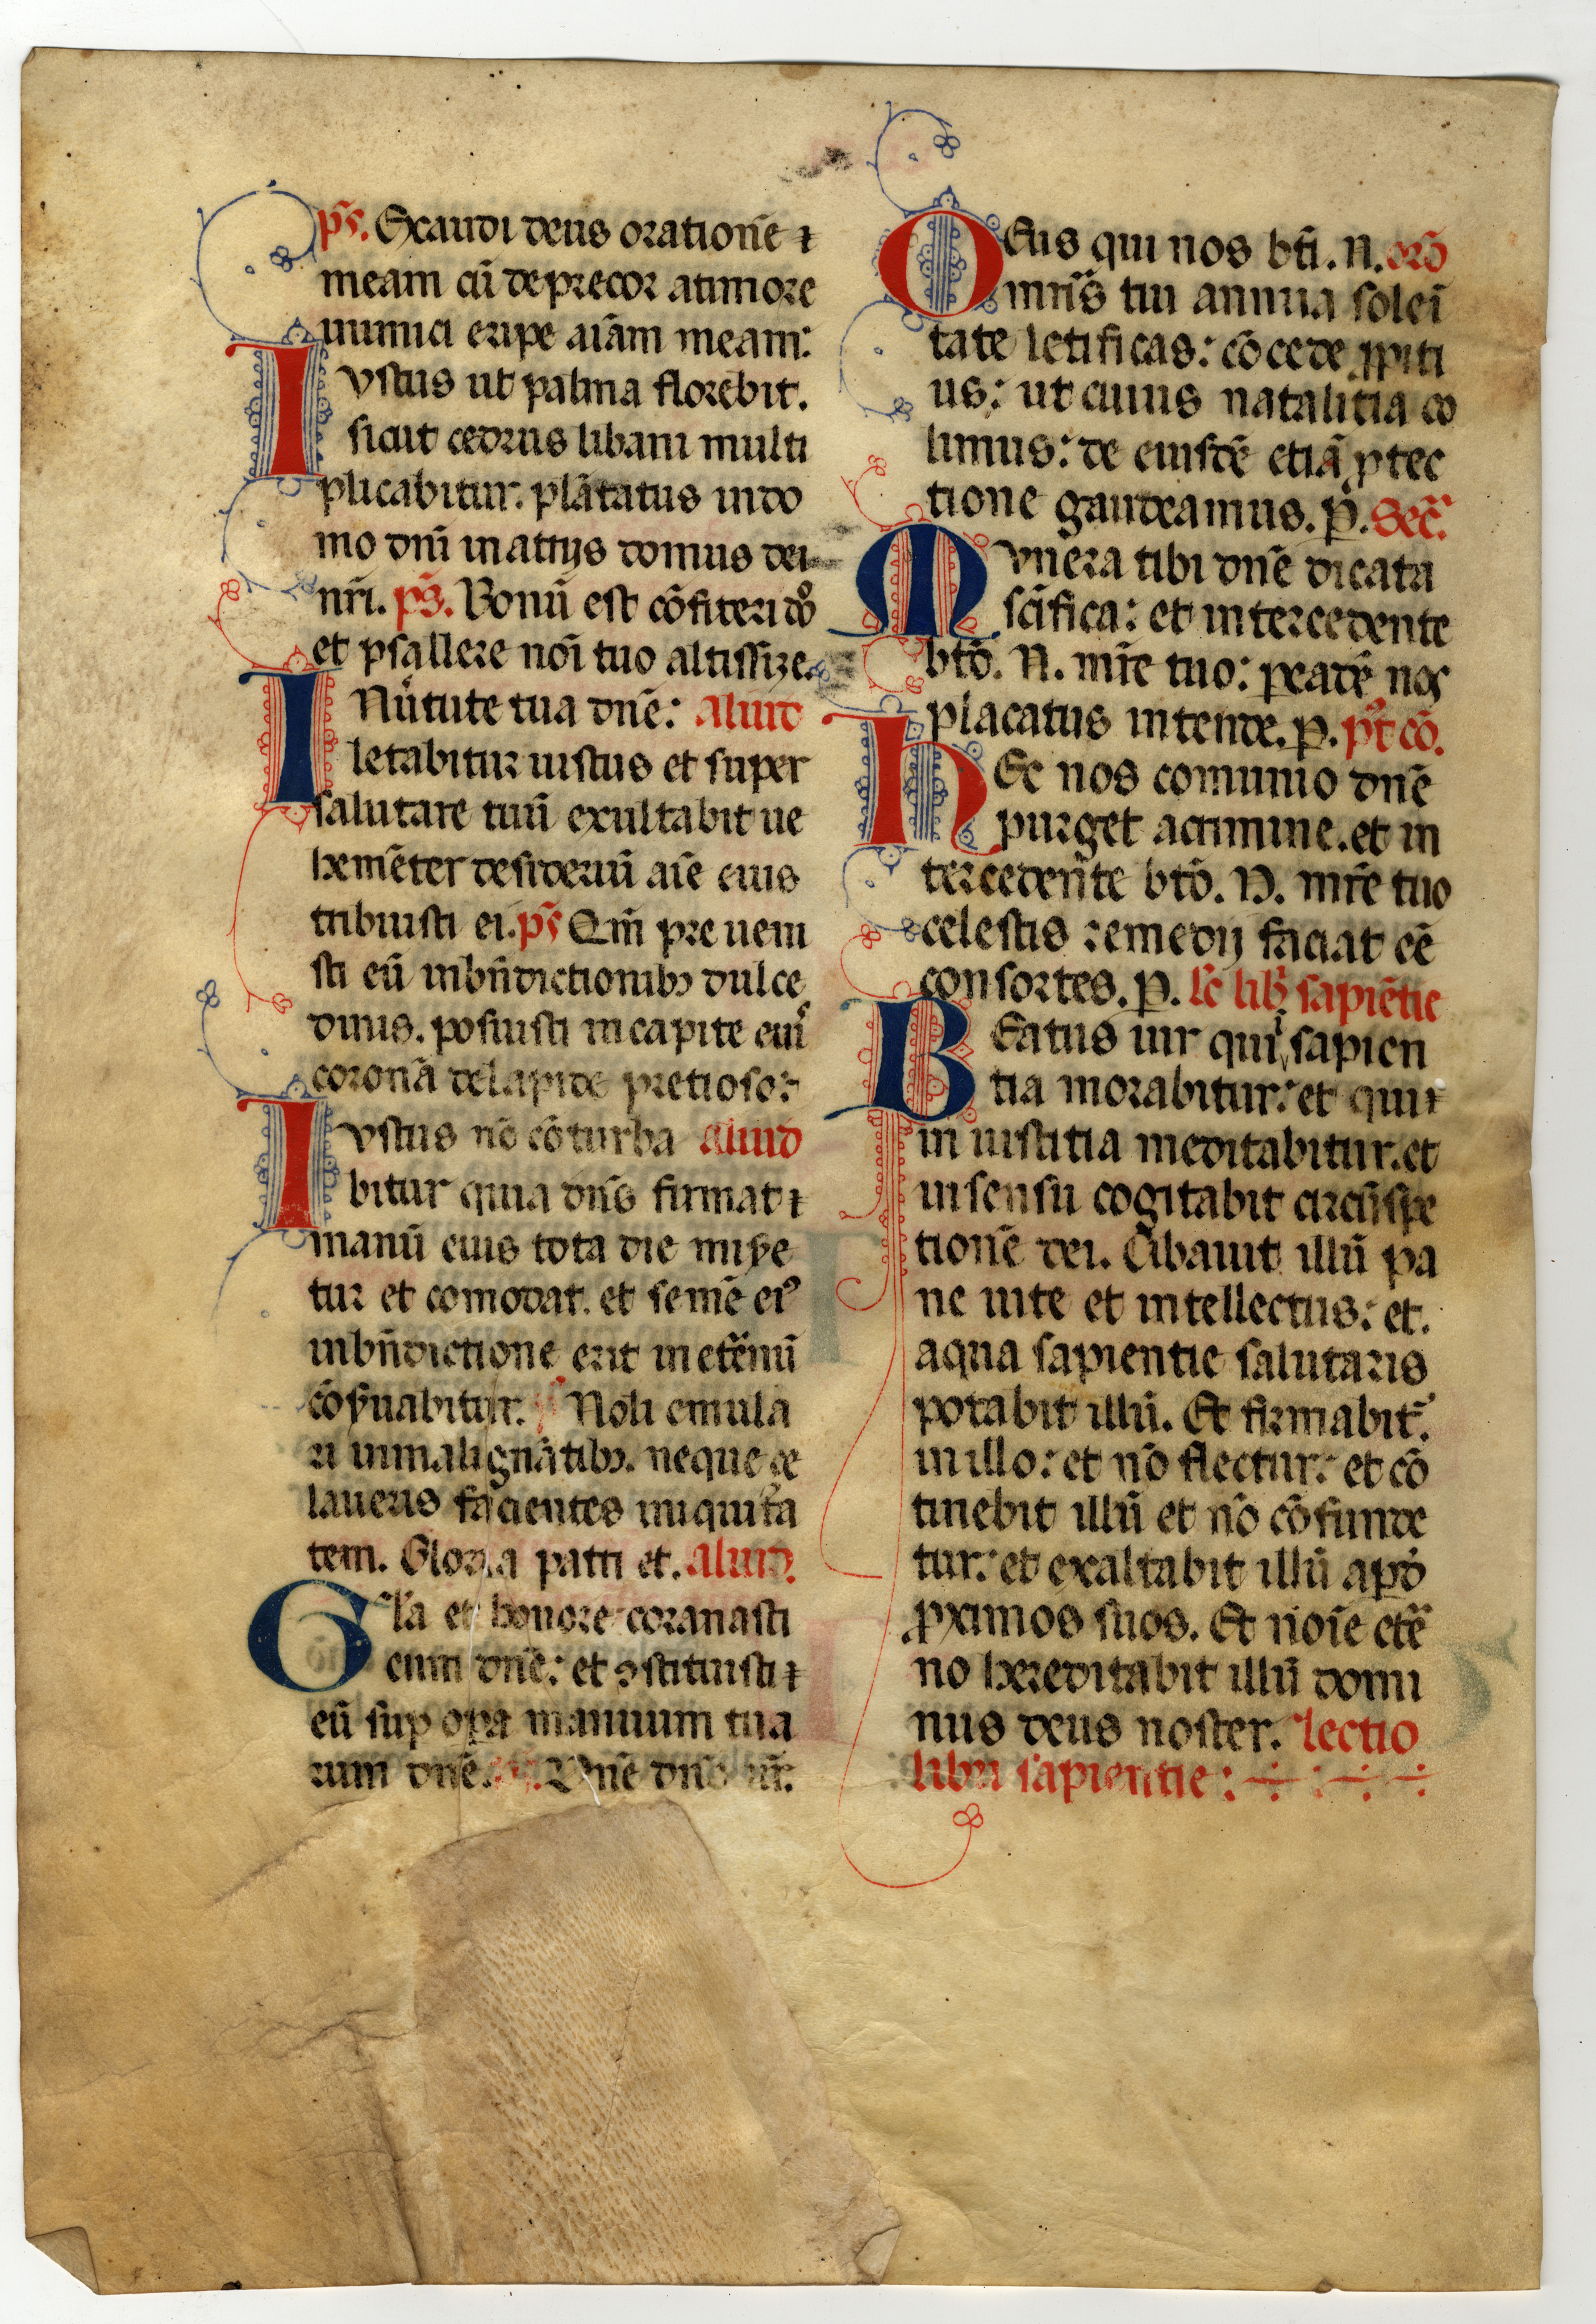 ps̃. Exaudi deus orationẽ
meam cũ deprecor a timore
inimici eripe aiãm meam:
Iustus ut palma florebit.
sicut cedrus libani multi
plicabitur. plãtatus in do
mo dñi in atriis domus dei
nr̃i. ps̃. Bonũ est cõfiteri dño
et psallere noĩ tuo altissime.
IN uirtute tua dnẽ: aliud
letabitur iustus et super
salutare tuũ exultabit ue
hemẽter desideriũ aĩe eius
tribuisti ei. ps̃ Qm̃ pre ueni
sti eũ in bñdictionibꝫ dulce
dinis. posuisti in capite eiuˢ
coronã de lapide pretioso:
Iustus nõ cõturba aliud
bitur quia dñs firmat
manũ eius tota die misere
tur et comodat. et semẽ eiꝰ
in bñdictione erit in etẽnũ
cõseruabitur. Noli emula
ri in malignãtibꝫ. neque ze
laueris facientes iniquita
tem. Gloria patri et. aliud.
Gl̃a et honore coranasti
eum dnẽ: et ꝯstituisti
eũ sup̱ opa manuum tua
rum dnẽ. Dnẽ dñs nr̃.
Deus qui nos bt̃i. N. orõ
mr̃is tui annua soleñ
tate letificas: cõcede ꝓpiti
us: ut cuius natalitia co
limus: de eiusdẽ etiã ꝓtec
tione gaudeamus. P̱. Sec̃.
Munera tibi dnẽ dicata
sc̃ifica: et intercedente
btõ. N. mr̃e tuo: ꝑ eadẽ nos
placatus intende. p̱. pꝰt cõ.
Hec nos comunio dnẽ
purget a crimine. et in
tercedente btõ. N. mr̃e tuo
celestis remedii faciat eẽ
consortes. P̱. lc̃ lib̃ sapiẽtie
Beatus uir qui ⁱ sapien
tia morabitur: et qui
in iustitia meditabitur. et
in sensu cogitabit circũspe
tionẽ dei. Cibauit illũ pa
ne uite et intellectus: et.
aqua sapientie salutaris
potabit illũ. Et firmabit̃.
in illo: et nõ flectur: et cõ
tinebit illũ et nõ cõfunde
tur: et exaltabit illũ apḋ
ꝓximos suos. Et noĩe etẽ
no hereditabit illũ domi
nus deus noster. lectio
libri sapientie: